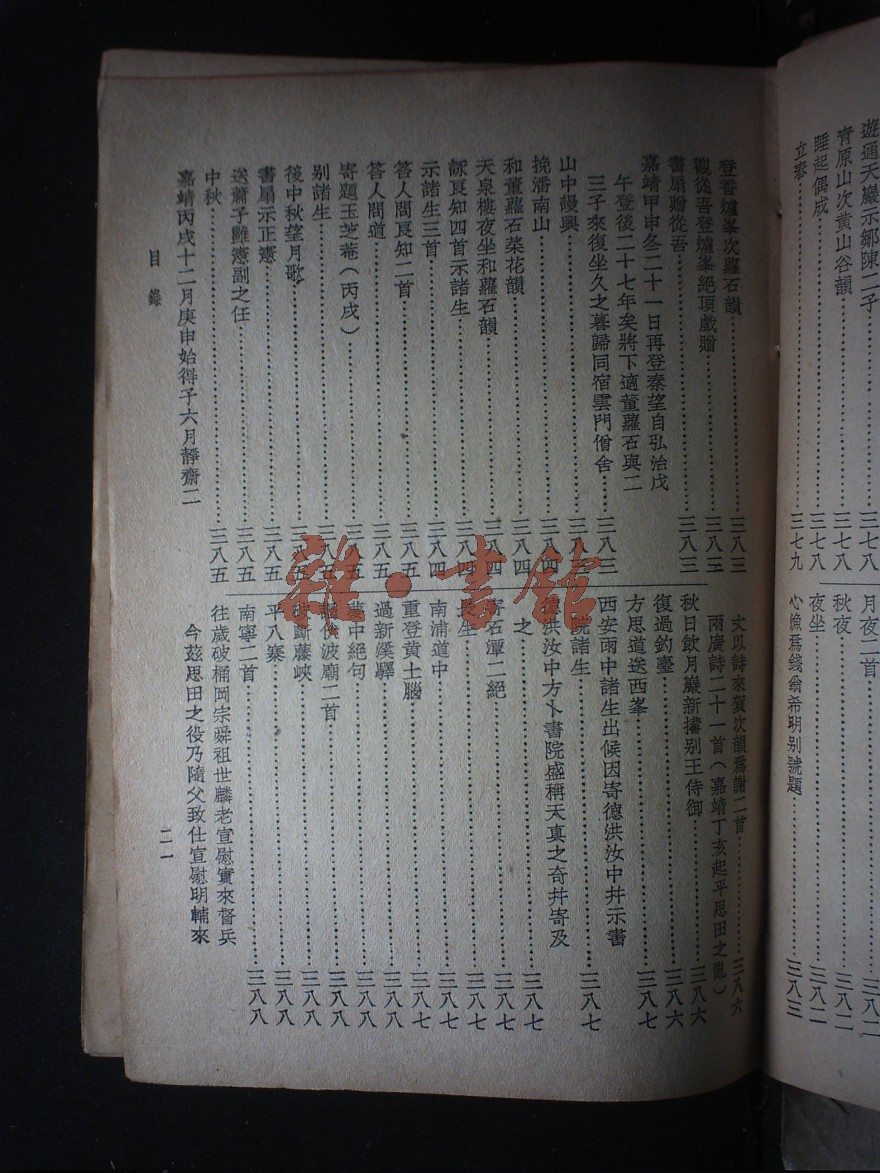 遊通天巖示鄒陳二子
青原山次黄山谷韻……三七八
睡起偶成……三七八
立春……三七九
月夜二首……三八二
秋夜……三八二
夜坐……三八二
心漁爲錢翁希明别號題……三八三
登香爐峯次蘿石韻……三八三
觀從吾登爐峯絕頂戲贈……三八三
書扇贈從吾……三八三
嘉靖甲申冬二十一日再登秦望自弘治戊
午登後二十七年矣將下適董蘿石與二
三子來復坐久之暮歸同宿雲門僧舍……三八三
山中謾興……三八三
挽潘南山……三八四
和董蘿石菜花韻……三八四
天泉樓夜坐和蘿石韻……三八四
詠良知四首示諸生……三八四
示諸生三首……三八四
答人問良知二首……三八五
答人問道……三八五
寄題玉芝菴(丙戌)……三八五
别諸生……三八五
後中秋望月歌……三八五
書扇示正憲……三八五
送蕭子雝憲副之任……三八五
中秋……三八五
嘉靖丙戌十二月庚申始得子六月靜齋二
丈以詩來賀次韻爲謝二首……三八六
兩廣詩二十一首(嘉靖丁亥起平思田之亂)
秋日飲月巖新搆别王侍御……三八六
復過釣臺……三八六
方思道送西峯……三八七
西安雨中諸生出候因寄德洪汝中幷示書
院諸生……三八七
德洪汝中方卜書院盛稱天真之奇幷寄及
之……三八七
寄石潭二絕……三八七
長生……三八七
南浦道中……三八七
重登黄土腦……三八七
過新溪驛……三八八
夢中絕句……三八八
謁伏波廟二首……三八八
破斷藤峽……三八八
平八寨……三八八
南寧二首……三八八
往歲破桶岡宗舜祖世麟老宣慰實來督兵
今兹思田之役乃隨父致仕宣慰明輔來
目錄
二一
雜·書館